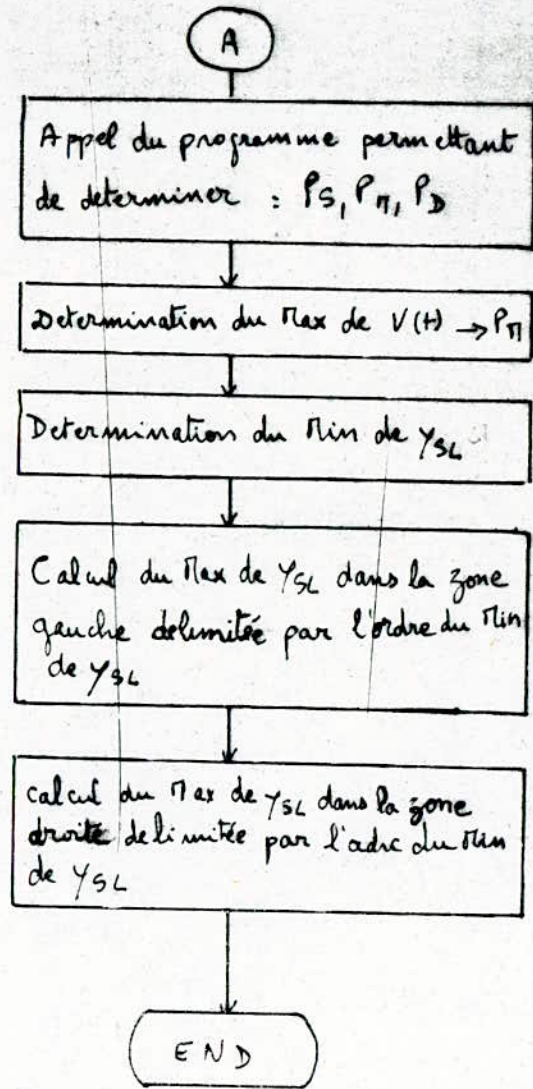 A
Appel du programme permettant
de determiner : PS, PM, PD
Determination du Max de V(t) → PM
Determination du Min de YSL
Calcul du Max de YSL dans la zone
gauche delimitée par l'ordre du Min
de YSL
calcul du Max de YSL dans la zone
droite delimitée par l'adrc du Min
de YSL
END